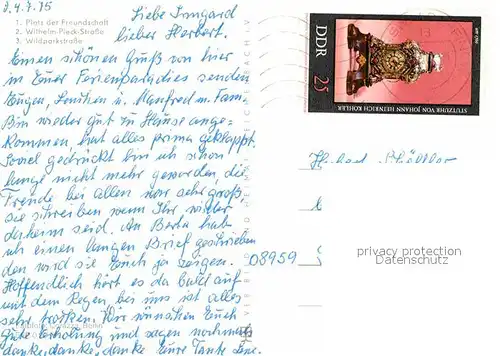 d. 4.7.75
1. Platz der Freundschaft
2. Wilhelm-Pieck-Straße
3. Wildparkstraße
Liebe Irmgard
lieber Herbert.
Einen schönen Gruß von hier
in Euer Ferienparadies senden
Eugen, u. Manfred m. Fam.
Bin wieder gut zu Hause ange-
kommen, hat alles prima geklappt.
Soviel gedrückt bin ich schon
lange nicht mehr geworden, die
Freude bei allen war sehr groß,
sie schreiben wenn Ihr wieder
daheim seid. An Berta hab
ich einen langen Brief geschrieben
den wird sie Euch ja zeigen.
Hoffentlich hört es da bald auf
mit dem Regen, bei uns ist alles
sehr trocken. Wir wünschen Euch
gute Erholung und sagen nochmal
danke, danke, danke Eure Tante
DDR
25
STUTZUHR VON JOHANN HEINRICH KÖHLER
Herbert
08959
privacy protection
Datenschutz